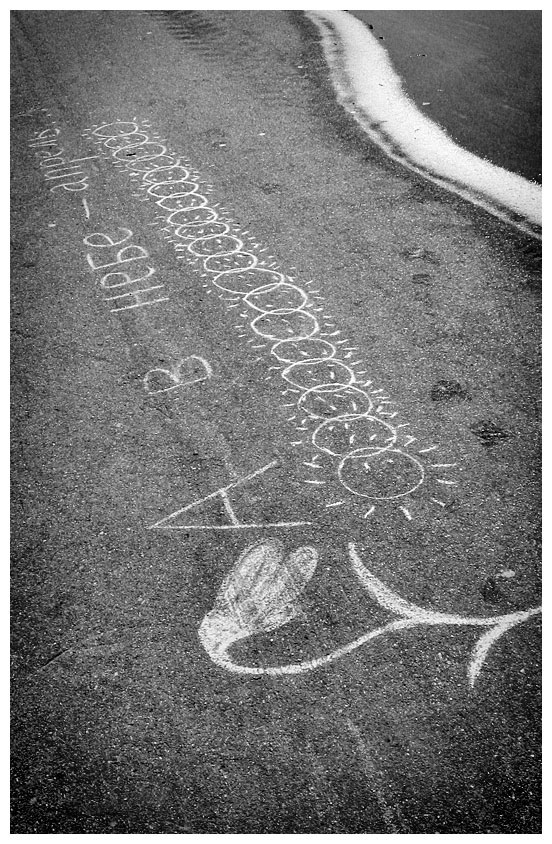 А В НеБе - апрель